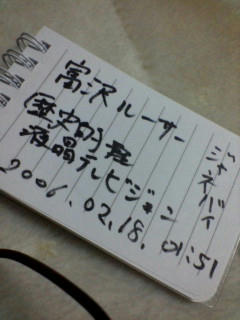 富沢ルーサー
(歴史的)
液晶テレビジョン
2006.02.18. 01:51
ジャネバイ